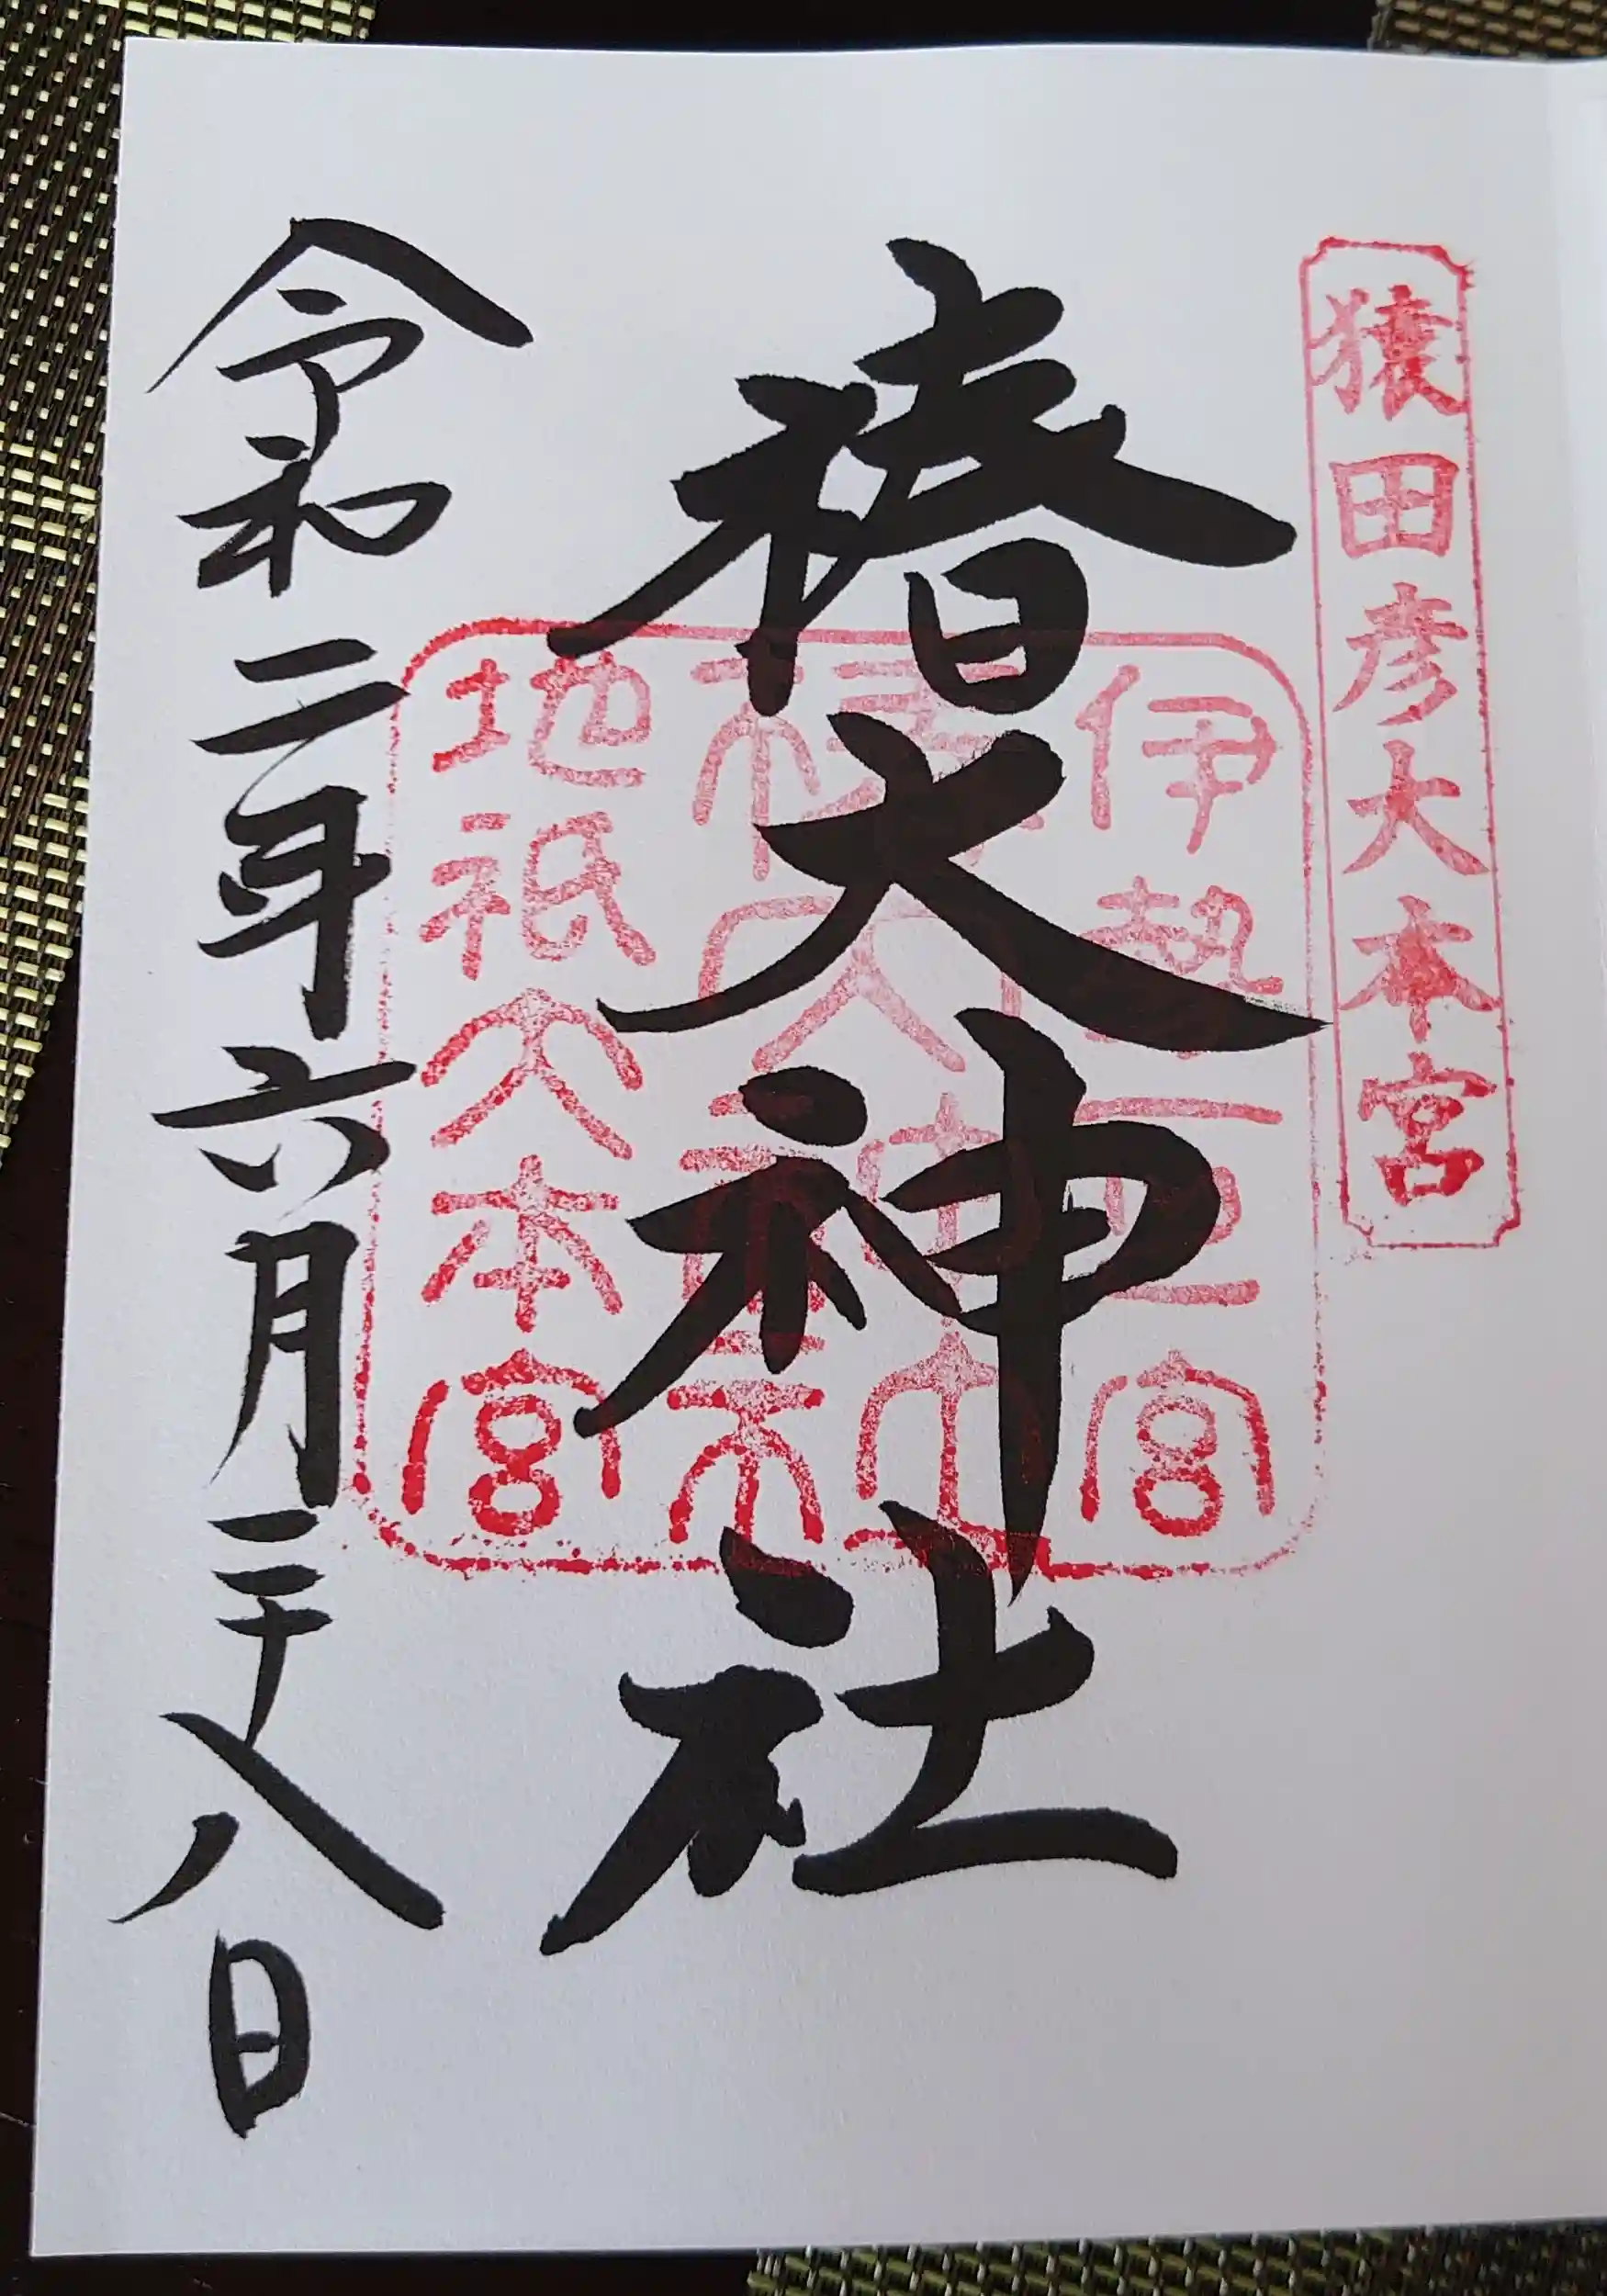 猿田彦大本宮
椿大神社
伊勢一之宮
椿大神社
地祇大本宮
令和二年六月二十八日